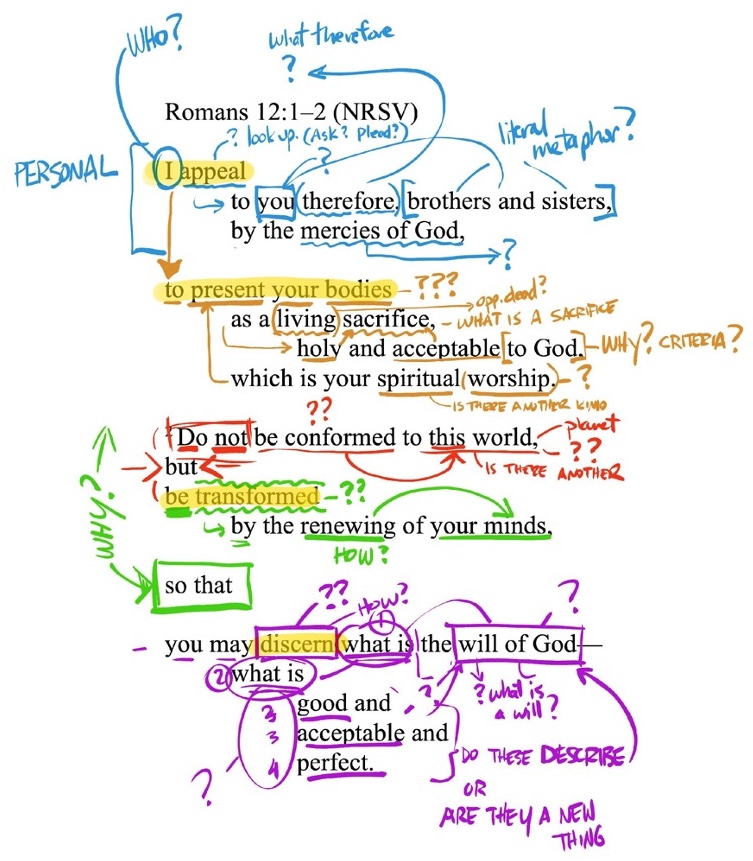 WHO?
what therefore
?
Romans 12:1–2 (NRSV)
? look up. (Ask? Plead?)
literal metaphor?
PERSONAL
I appeal
?
to you therefore, [brothers and sisters,]
by the mercies of God,
?
to present your bodies – ???
opp. dead?
as a living sacrifice, – WHAT IS A SACRIFICE
holy and acceptable [to God. – WHY? CRITERIA?
which is your spiritual (worship.) – ?
IS THERE ANOTHER KIND
??
Do not be conformed to this world,
planet
??
but
IS THERE ANOTHER
be transformed – ??
WHY?
by the renewing of your minds,
HOW?
so that
??
HOW?
?
1
you may discern what is the will of God—
2 what is
?
? what is
a will?
2 good and
3 acceptable and
4 perfect.
?
DO THESE DESCRIBE
OR
ARE THEY A NEW
THING